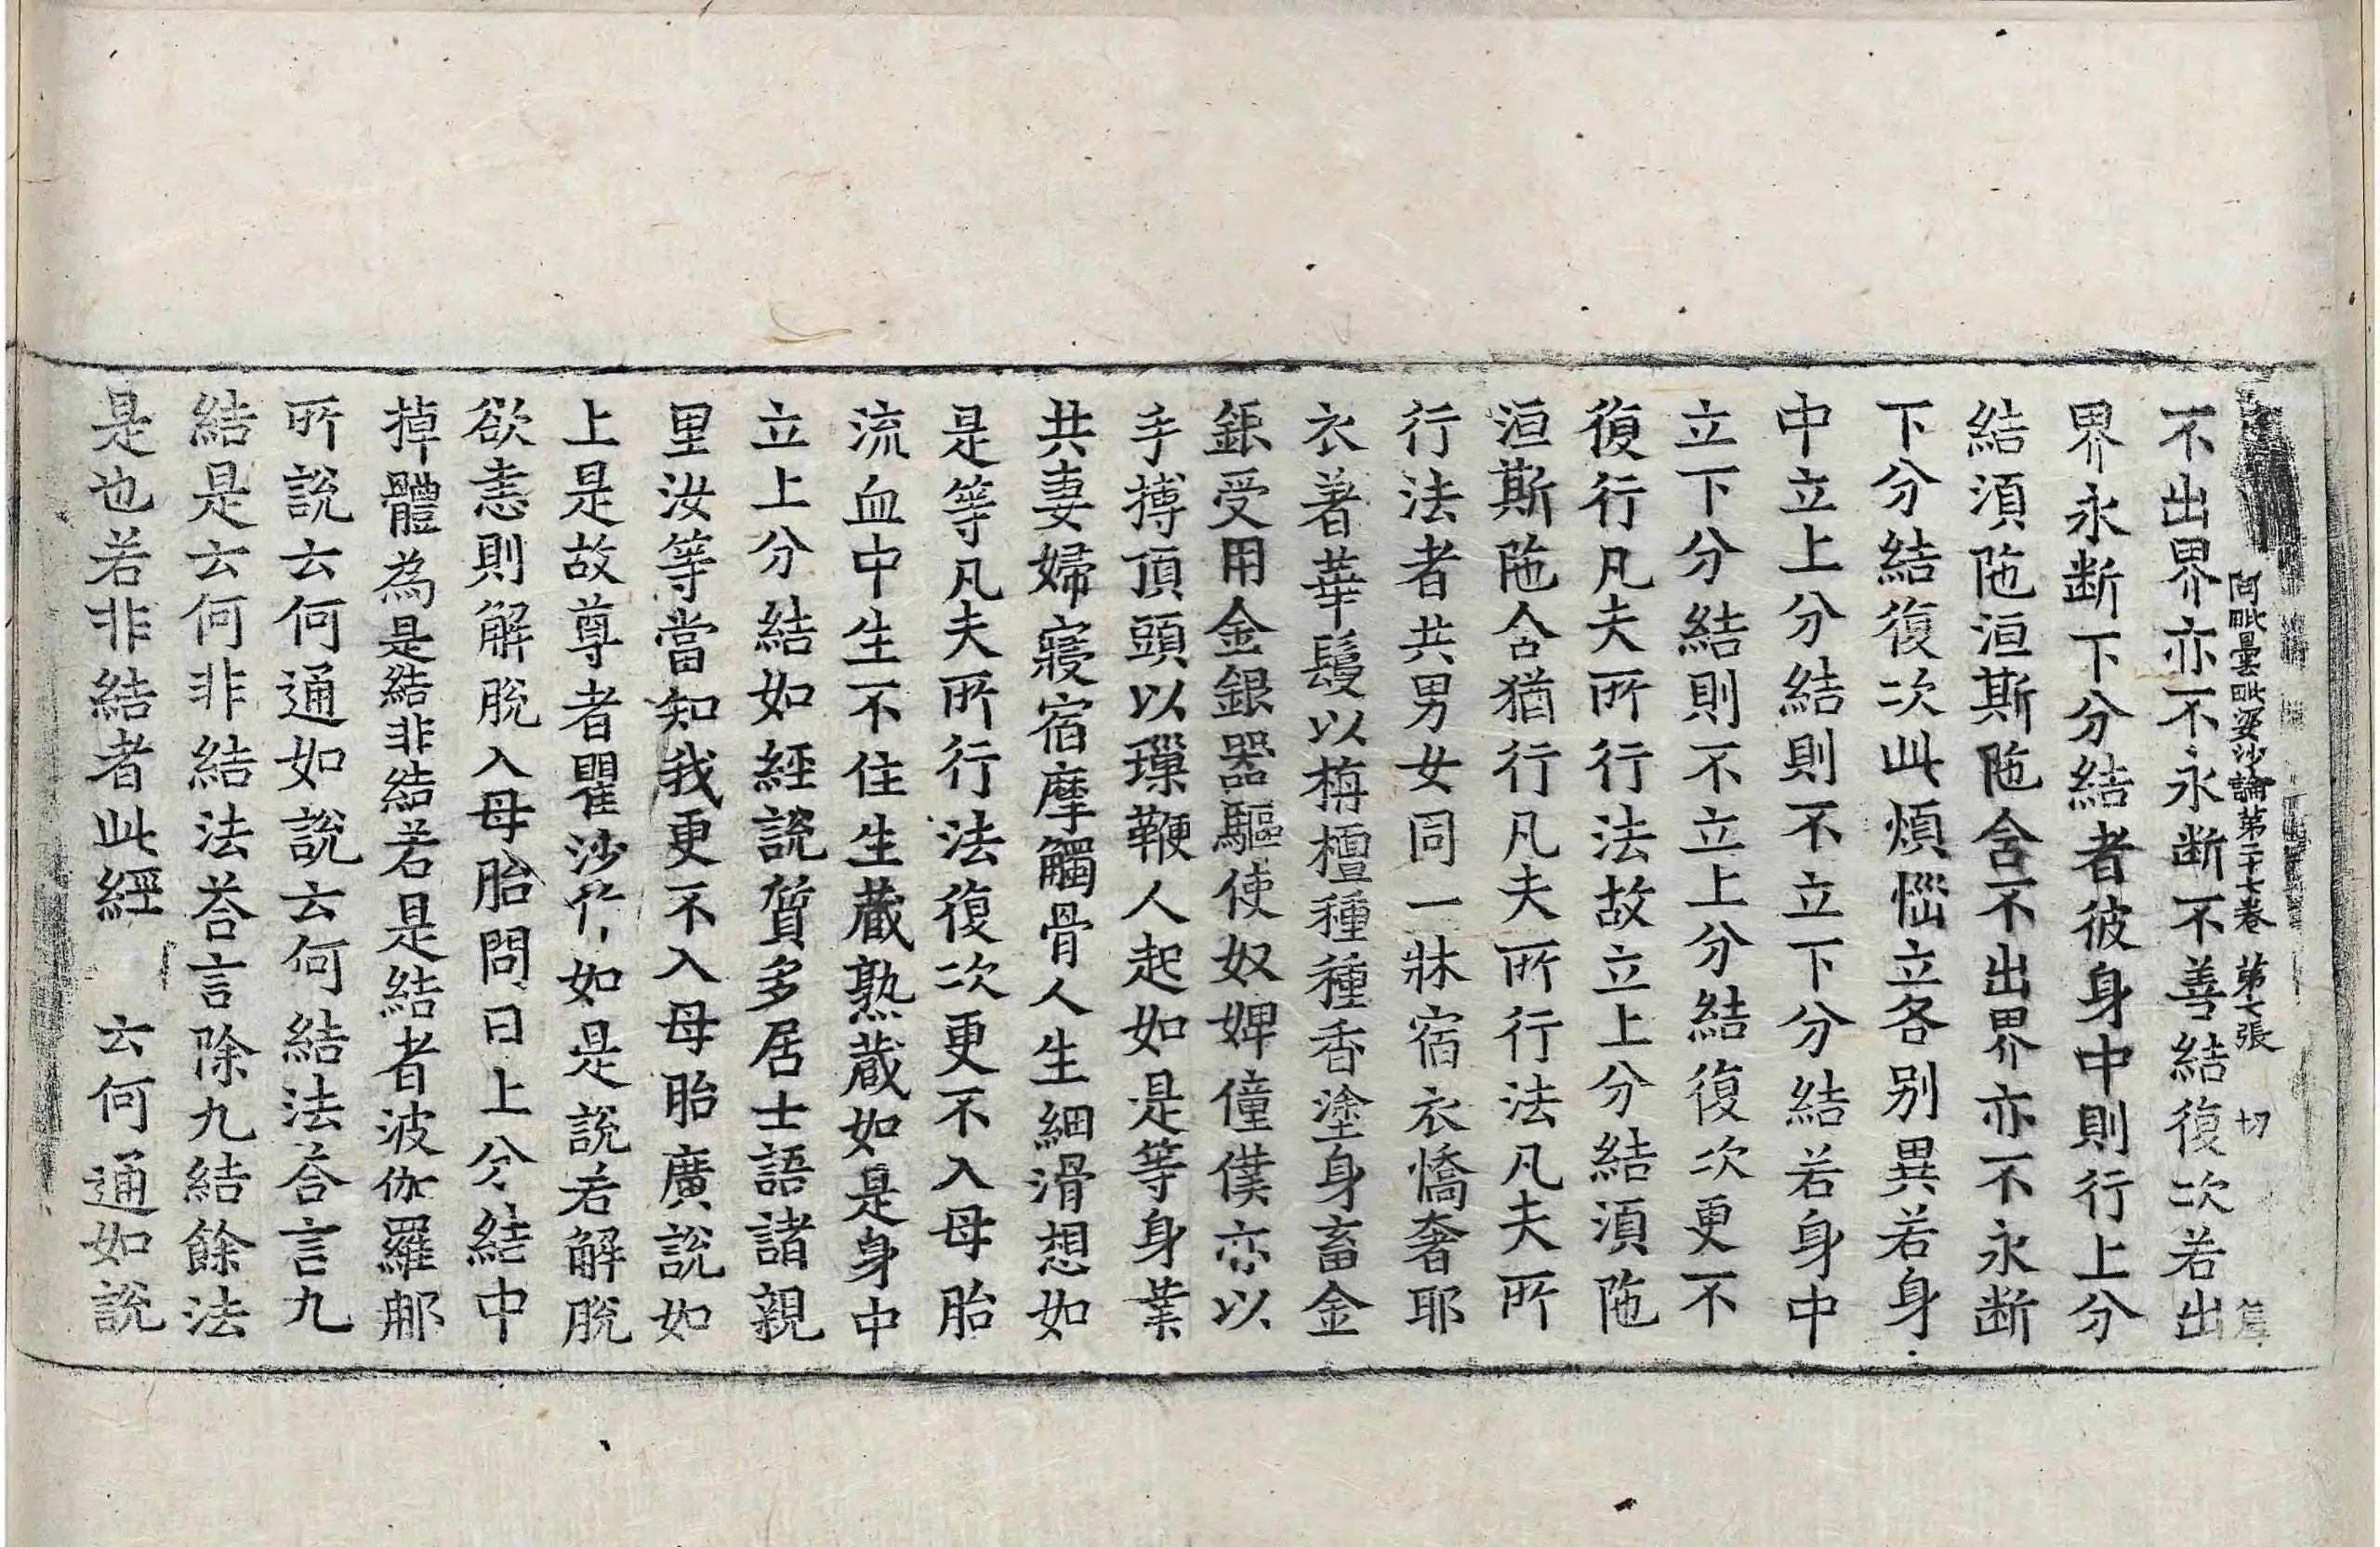 阿毗曇毗婆沙論第二十七卷 第七張 切
不出界亦不永断不善結復次若出
界永断下分結者彼身中則行上分
結湏陁洹斯陁含不出界亦不永断
下分結復次此煩惱立各别異若身
中立上分結則不立下分結若身中
立下分結則不立上分結復次更不
復行凡夫所行法故立上分結湏陁
洹斯陁含猶行凡夫所行法凡夫所
行法者共男女同一牀宿衣憍奢耶
衣著華鬘以栴檀種種香塗身畜金
銀受用金銀器驅使奴婢僮僕亦以
手搏頂頭以鞭人起如是等身業
共妻婦寢宿摩觸骨人生細滑想如
是等凡夫所行法復次更不入母胎
流血中生不住生蔵熟蔵如是身中
立上分結如經說質多居士語諸親
里汝等當知我更不入母胎廣說如
上是故尊者瞿沙作如是說若解脫
欲恚則解脫入母胎問曰上分結中
掉體為是結非結若是結者波伽羅那
所說云何通如說云何結法荅言九
結是云何非結法荅言除九結餘法
是也若非結者此經 云何通如說